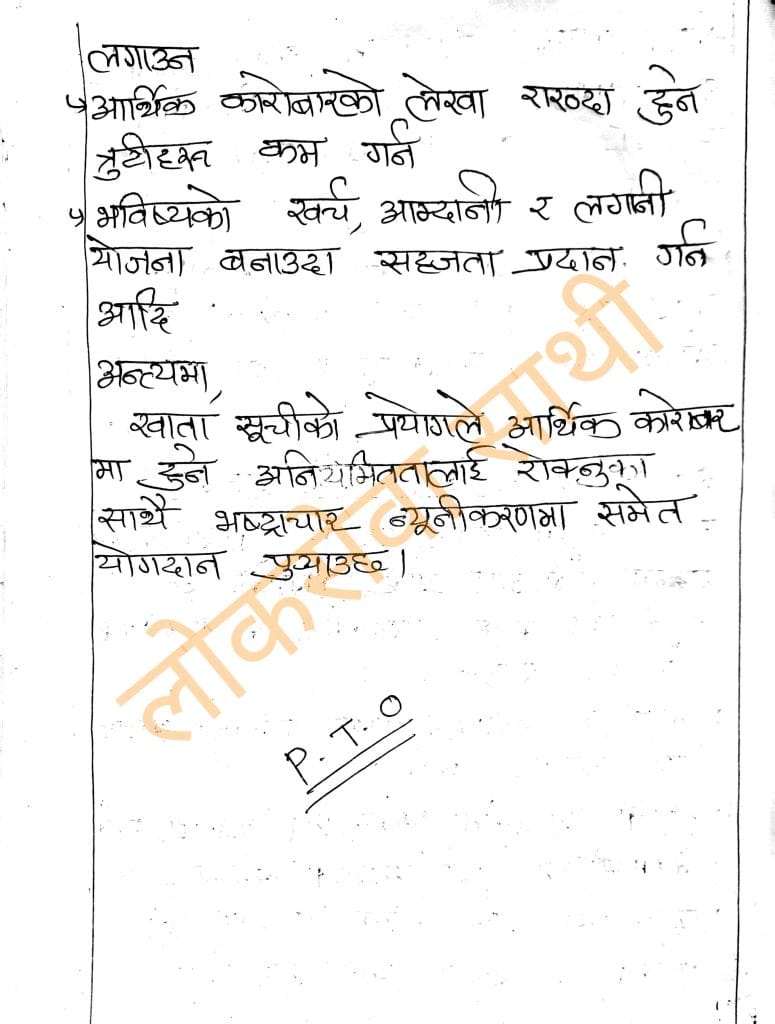 लगाउन
↳ आर्थिक कारोबारको लेखा राख्दा हुने
त्रुटीहरू कम गर्न
↳ भविष्यको खर्च, आम्दानी र लगानी
योजना बनाउदा सहजता प्रदान गर्न
आदि
अन्त्यमा,
खाता सूचीको प्रयोगले आर्थिक कारोबार
मा हुने अनियमिततालाई रोक्नुका
साथै भष्ट्राचार न्यूनीकरणमा समेत
योगदान पुर्‍याउछ।
लोकसेवा साथी
P.T.O